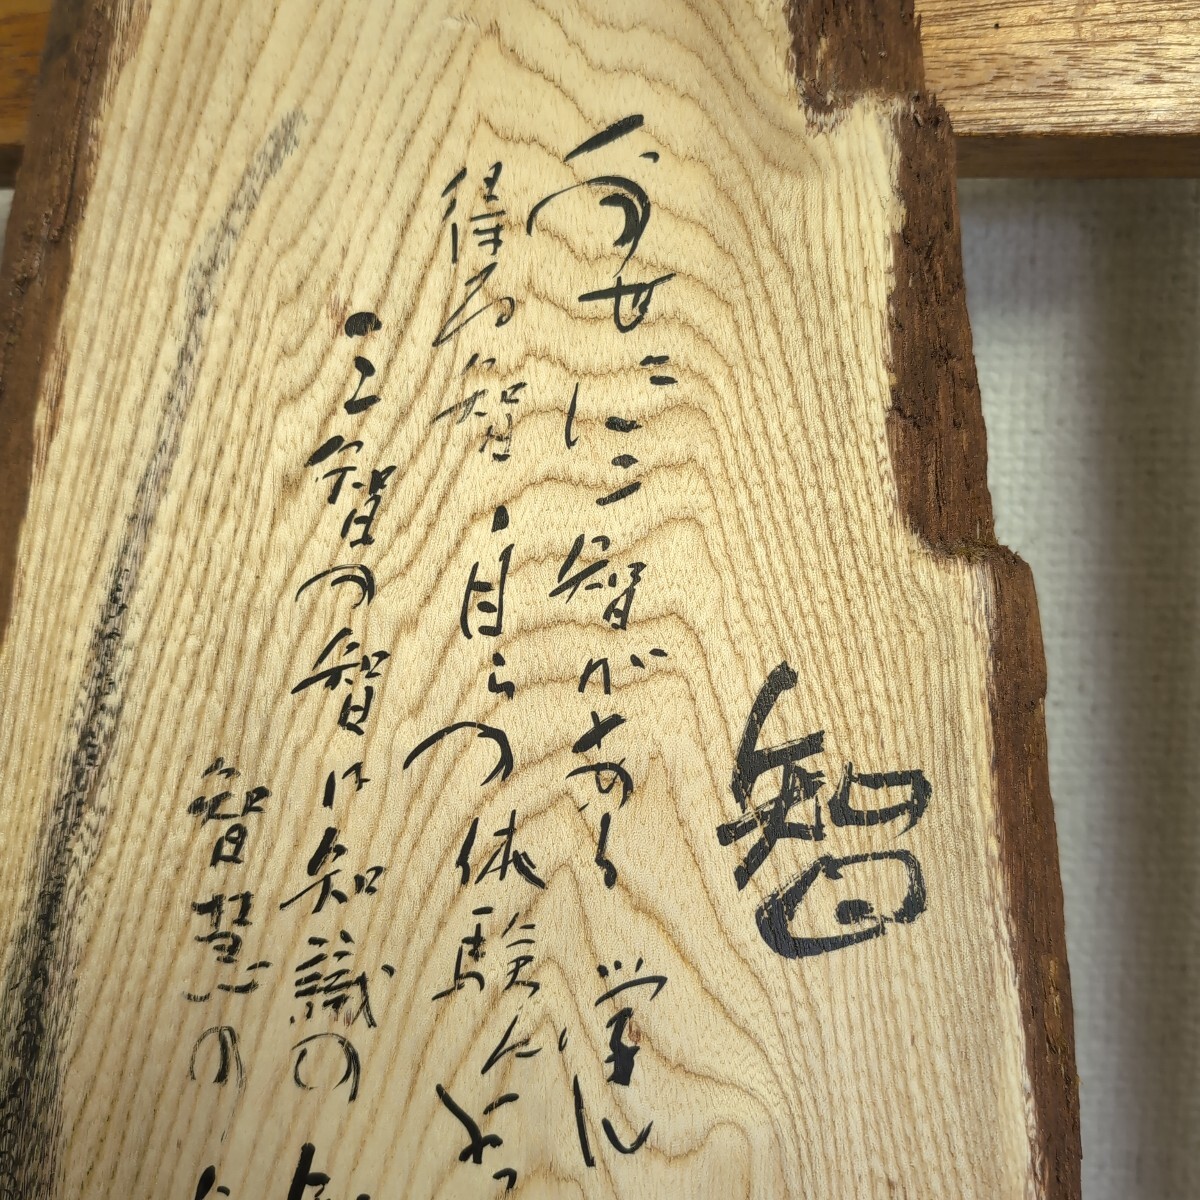 智
の世に二智がある 学に
得る智・自らの体験によ
・この智の智は知識の
智慧の